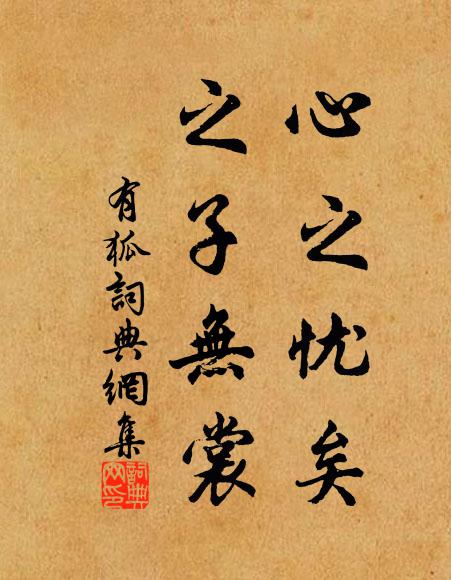 心之忧矣
之子無裳
有狐詞典網集
詞典網印